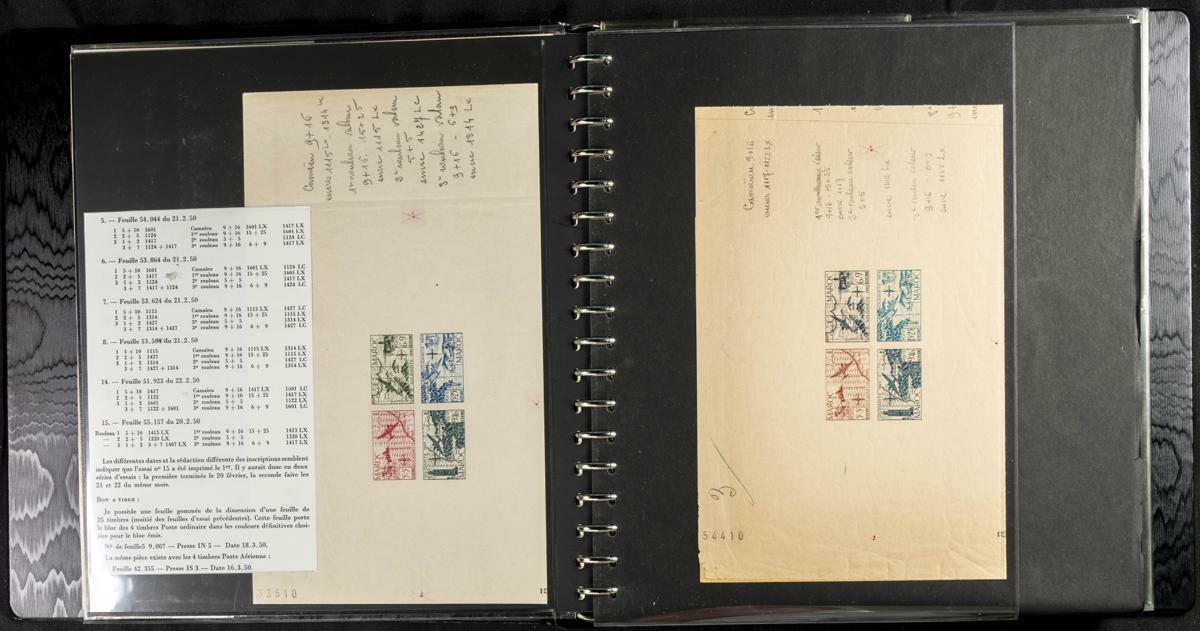 5. — Feuille 54.044 du 21.2.50
1 5 + 10 1601 Camaïeu 9 + 16 1601 LX 1417 LX
2 2 + 5 1124 1er rouleau 9 + 16 15 + 25 1601 LX
3 1 + 2 1417 2e rouleau 5 + 5 1124 LC
3 + 7 1124 + 1417 3e rouleau 9 + 16 6 + 9 1417 LX
6. — Feuille 53.864 du 21.2.50
1 5 + 10 1601 Camaïeu 9 + 16 1601 LX 1124 LC
2 2 + 5 1417 1er rouleau 9 + 16 15 + 25 1601 LX
3 1 + 2 1124 2e rouleau 5 + 5 1417 LX
3 + 7 1417 + 1124 3e rouleau 9 + 16 6 + 9 1424 LC
7. — Feuille 53.624 du 21.2.50
1 5 + 10 1115 Camaïeu 9 + 16 1115 LX 1427 LC
2 2 + 5 1314 1er rouleau 9 + 16 15 + 25 1115 LX
3 1 + 2 1427 2e rouleau 5 + 5 1314 LX
3 + 7 1314 + 1427 3e rouleau 9 + 16 6 + 9 1427 LC
8. — Feuille du 21.2.50
1 5 + 10 1115 Camaïeu 9 + 16 1115 LX 1314 LX
2 2 + 5 1427 1er rouleau 9 + 16 15 + 25 1115 LX
3 1 + 2 1314 2e rouleau 5 + 5 1427 LC
3 + 7 1427 + 1314 3e rouleau 9 + 16 6 + 9 1314 LX
14. — Feuille 51.923 du 22.2.50
1 5 + 10 1417 Camaïeu 9 + 16 1417 LX 1601 LC
2 2 + 5 1122 1er rouleau 9 + 16 15 + 25 1417 LX
3 1 + 2 1601 2e rouleau 5 + 5 1122 LX
3 + 7 1122 + 1601 3e rouleau 9 + 16 6 + 9 1601 LC
15. — Feuille 55.157 du 20.2.50
Rouleau 1 5 + 10 1413 LX 1er rouleau 9 + 16 15 + 25 1413 LX
— 2 2 + 5 1320 LX 2e rouleau 5 + 5 1320 LX
— 3 1 + 2 3 + 7 1407 LX 3e rouleau 9 + 16 6 + 9 1417 LX
Les différentes dates et la rédaction différente des inscriptions semblent
indiquer que l'essai n° 15 a été imprimé le 1er. Il y aurait donc eu deux
séries d'essais : la première terminée le 20 février, la seconde faite les
21 et 22 du même mois.
BON A TIRER :
Je possède une feuille gommée de la dimension d'une feuille de
25 timbres (moitié des feuilles d'essai précédentes). Cette feuille porte
le bloc des 4 timbres Poste ordinaire dans les couleurs définitives choi-
sies pour le bloc émis.
N° de feuille5 9.007 — Presse IN 5 — Date 18.3.50.
La même pièce existe avec les 4 timbres Poste Aérienne :
Feuille 42.355 — Presse IS 3 — Date 16.3.50.
Camaïeu 9+16
encres 1115 LX - 1314 LX
1er rouleau valeur
9+16 - 15+25
encre 1115 LX
2e rouleau valeur
5+5
encre 1427 LC
3e rouleau valeur
9+16 - 6+9
encre 1314 LX
MAROC
MAROC
MAROC
5+5
MAROC
33510
IS
Camaïeu 9+16
encres 1117-1122 LX
9+16 - 15+25
encre 1117
2e rouleau valeur
5+5
encre 1112 LX
3e rouleau valeur
9+16 - 6+9
encre 1122 LX
MAROC
6+9
MAROC
MAROC
5+5
MAROC
3/
54410
IS